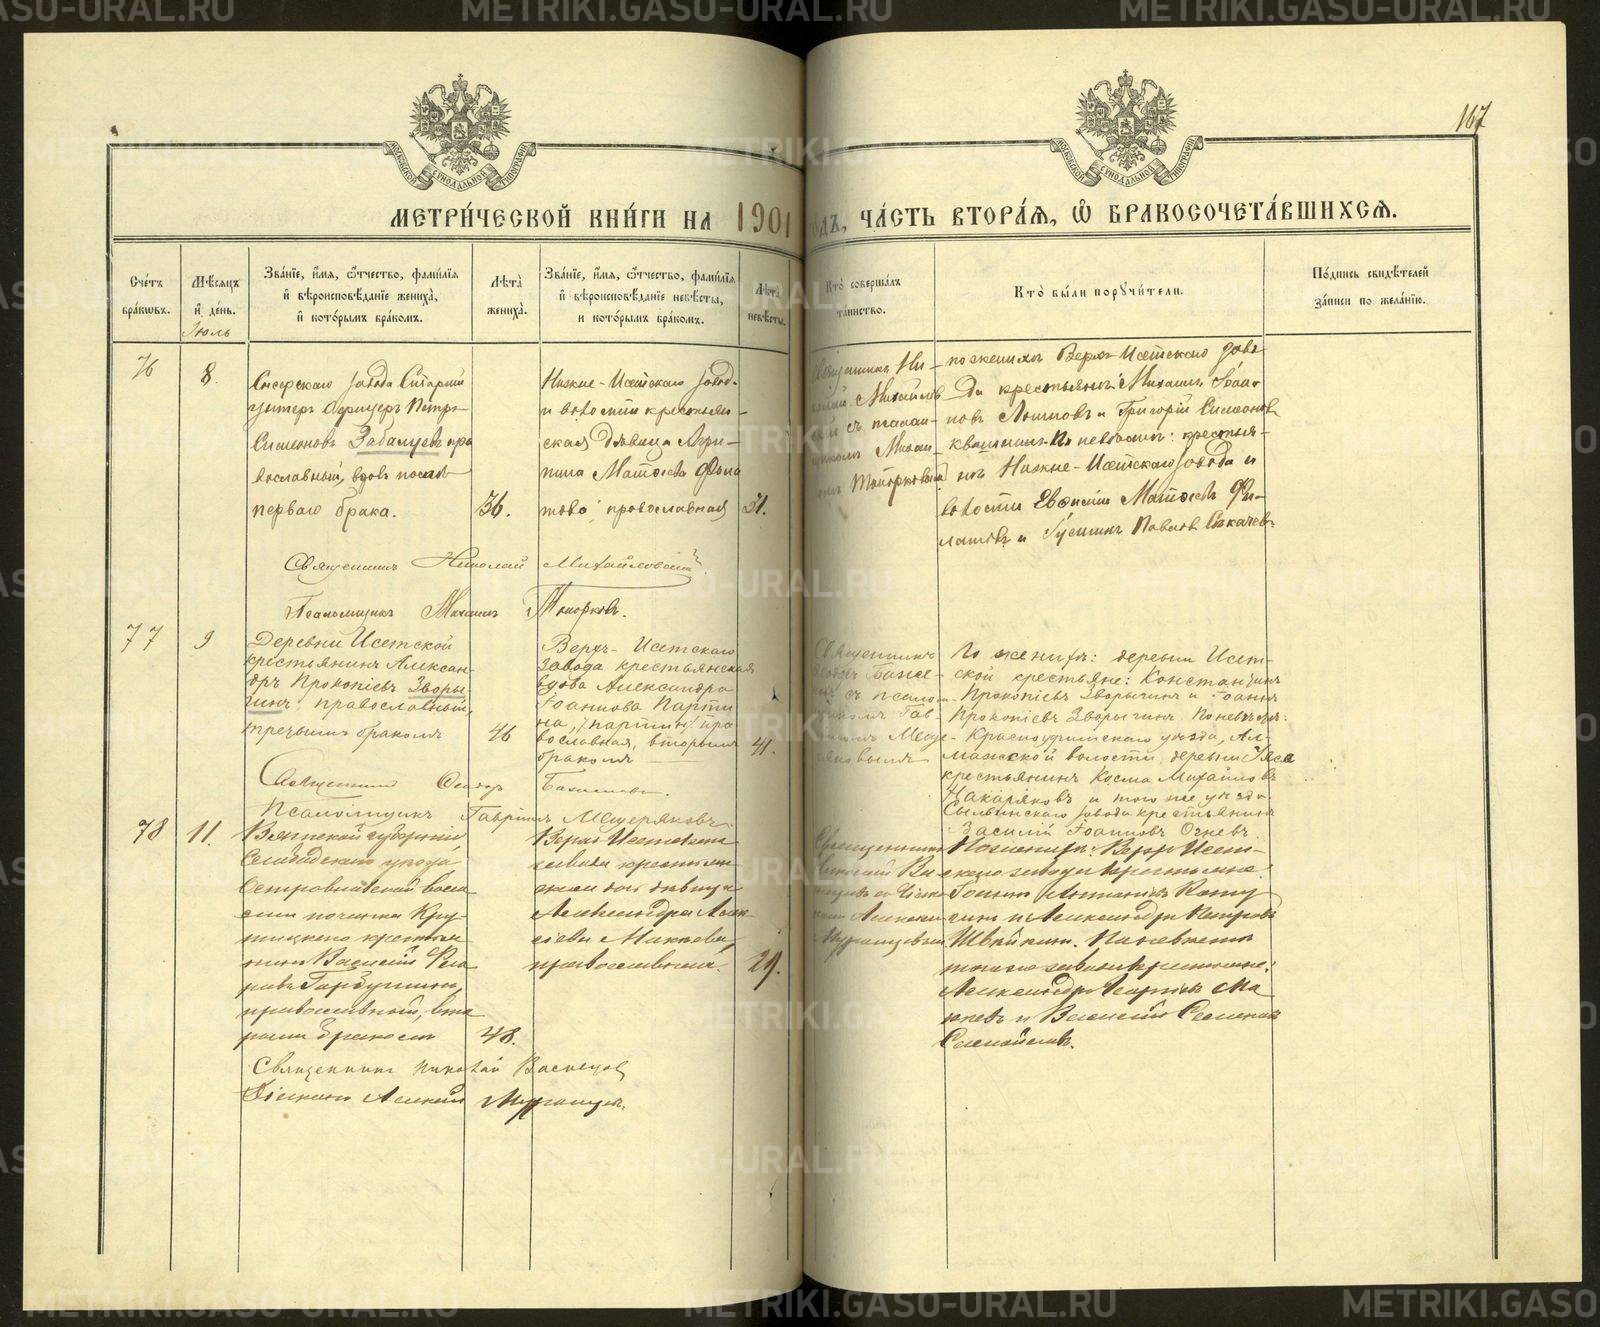 167
МОСКОВСКОЙ СѴНОДАЛЬНОЙ ТИПОГРАФІИ
МОСКОВСКОЙ СѴНОДАЛЬНОЙ ТИПОГРАФІИ
МЕТРИ́ЧЕСКОЙ КНИ́ГИ НА 1901 ГОДЪ, ЧА́СТЬ ВТОРА́Я, Ѽ БРАКОСОЧЕТА́ВШИХСЯ.
Сче́тъ бра́ковъ.
Мѣ́сяцъ и҆ де́нь.
Июль
Зва́нїе, и҆́мя, ѻ҆́тчество, фами́лїя и҆ вѣроисповѣ́данїе жениха̀, и҆ кото́рымъ бра́комъ.
Лѣта̀ жениха̀.
Зва́нїе, и҆́мя, ѻ҆́тчество, фами́лїя и҆ вѣроисповѣ́данїе невѣ́сты, и кото́рымъ бра́комъ.
Лѣта̀ невѣ́сты.
Кто̀ соверша́лъ та́инство.
Кто̀ бы́ли порꙋчи́тели.
По́дпись свидѣ́телей за́писи по жела́нїю.
76
8.
Сысерскаго завода Старшій
унтеръ офицеръ Петръ
Симеоновъ Забалуевъ пра
вославный, вдовъ послѣ
перваго брака.
36.
Нижне-Исетскаго завод.
и волости крестьян-
ская дѣвица Агри-
пина Матѳѣева Фила
това, православная
31.
Священникъ Ни-
колай Михайлов
скій съ псалом-
щикомъ Михаи
ломъ Топорковымъ
по женихѣ Верхъ-Исетскаго заво
да крестьяне: Михаилъ
и Григорій Симеоновъ
По невѣстѣ: крестья-
не Нижне-Исетскаго завода и
волости Евѳимій Матѳѣевъ Фи-
латовъ и Павловъ
Священникъ Николай Михайловскій
Псаломщикъ Михаилъ Топорковъ.
77
9
Деревни Исетской
крестьянинъ Алексан-
дръ Прокопіевъ Зворы
гинъ, православный,
третьимъ бракомъ
46
Верхъ-Исетскаго
завода крестьянская
вдова Александра
Іоаннова Парти
на, /партин/ пра
вославная, вторымъ
бракомъ
41.
Священникъ
съ псалом-
щикомъ Гав-
ріиломъ Меще-
ряковымъ
По женихѣ: деревни Исет-
ской крестьяне: Константинъ
Прокопіевъ Зворыгинъ и Іоаннъ
Прокопіевъ Зворыгинъ. По невѣстѣ:
Красноуфимскаго уѣзда, Ал-
мажской волости, деревни
крестьянинъ Косма Михайловъ
и того же уѣзда
Сылвинскаго завода крестьянинъ
Василій Іоанновъ Огневъ
Священникъ Ѳеодоръ
Псаломщикъ Гавріилъ Мещеряковъ.
78
11.
Вятской губерніи
уѣзда,
Островновской воло
сти починка Кру
тицкаго крестья
нинъ Василій
православный, вто
рымъ бракомъ
48.
Верхъ-Исетскаго
завода крестьян
ская дочь дѣвица
Александра Алек-
сѣева Макѣева,
православная.
29.
Священникъ
Николай Ва
снецовъ съ діако
номъ Алексѣе
По женихѣ: Верхъ Исет-
скаго завода крестьяне:
и Александръ Петровъ
Швейкинъ. По невѣстѣ
того же завода крестьяне:
Александръ Георгіевъ Ма
кѣевъ и Василій
Священникъ Николай Васнецов
Діаконъ Алексій
METRIKI.GASO-URAL.RU